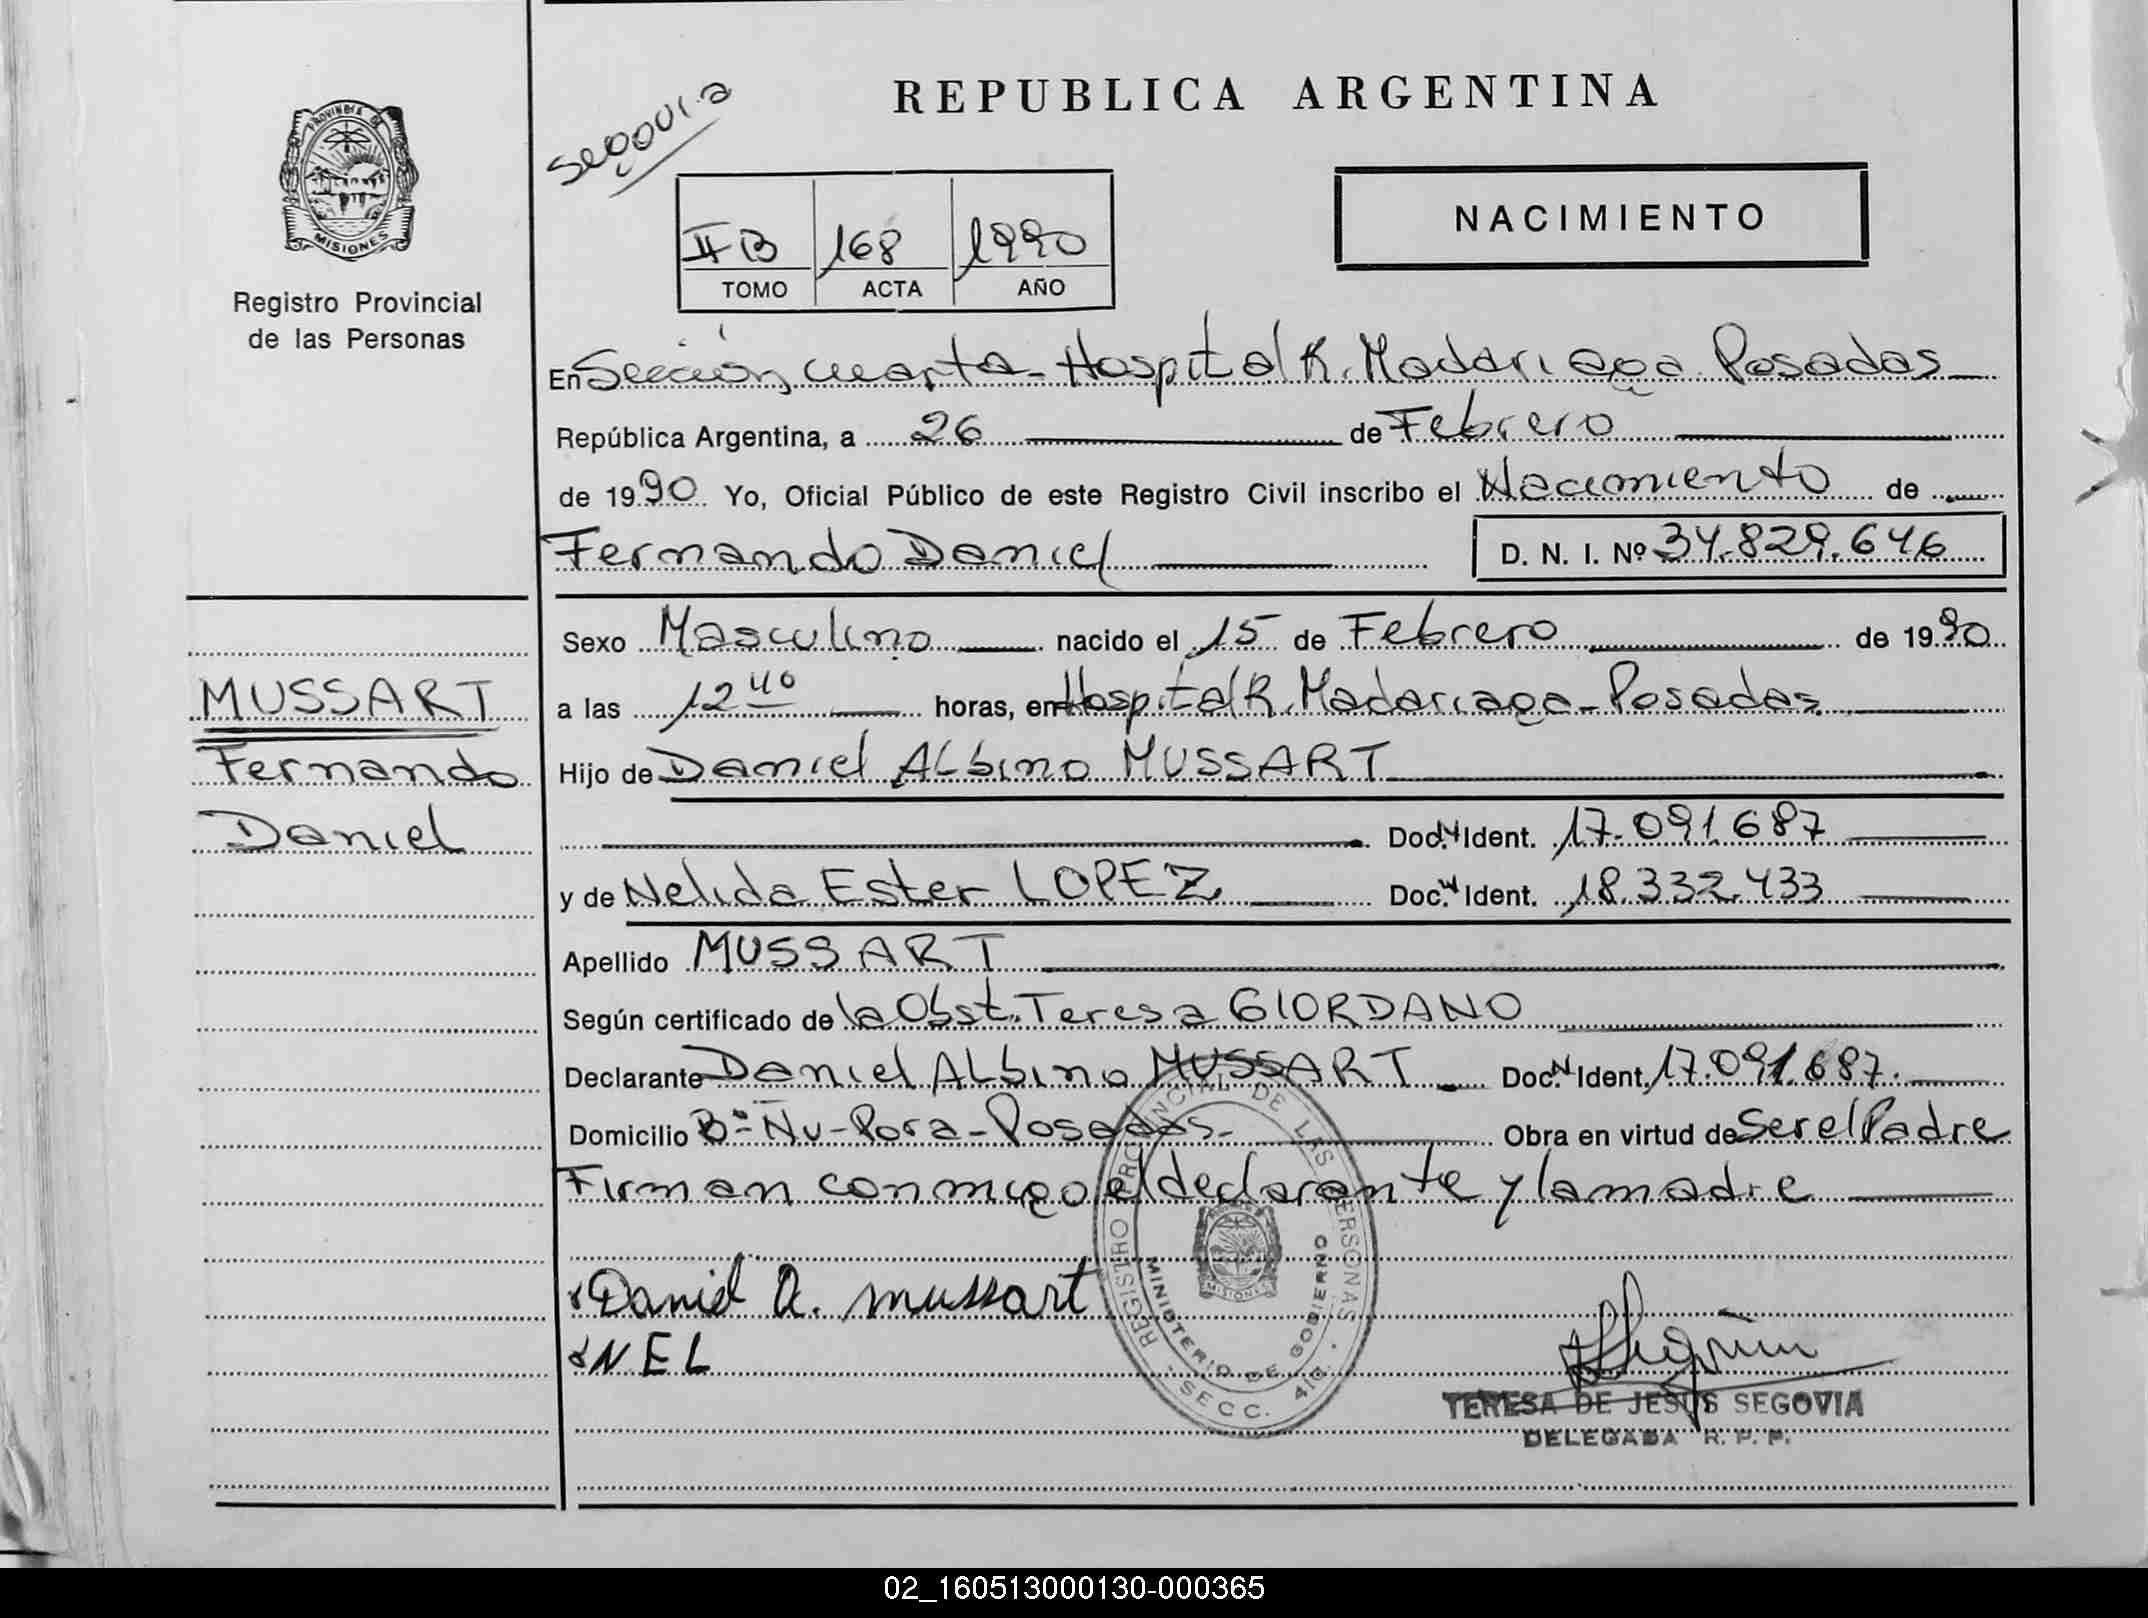 PROVINCIA DE
MISIONES
Registro Provincial
de las Personas
MUSSART
Fernando
Daniel
Segovia
REPUBLICA ARGENTINA
II B 168 1990
TOMO ACTA AÑO
NACIMIENTO
En Sección cuarta - Hospital R. Madariaga Posadas
República Argentina, a 26 de Febrero
de 1990. Yo, Oficial Público de este Registro Civil inscribo el Nacimiento de
Fernando Daniel D. N. I. Nº 34.829.646
Sexo Masculino nacido el 15 de Febrero de 1990
a las 12 40 horas, en Hospital R. Madariaga - Posadas
Hijo de Daniel Albino MUSSART
Doc. N Ident. 17.091.687
y de Nelida Ester LOPEZ Doc. N Ident. 18.332.433
Apellido MUSSART
Según certificado de la Obst. Teresa GIORDANO
Declarante Daniel Albino MUSSART Doc. N Ident. 17.091.687.
Domicilio Bº Ñu - Pora - Posadas - Obra en virtud de Ser el Padre
Firman conmigo el declarante y la madre
REGISTRO PROVINCIAL DE LAS PERSONAS
MINISTERIO DE GOBIERNO
MISIONES
SECC. 4ta.
Daniel A. mussart
N E L
TERESA DE JESUS SEGOVIA
DELEGADA R. P. P.
02_160513000130-000365